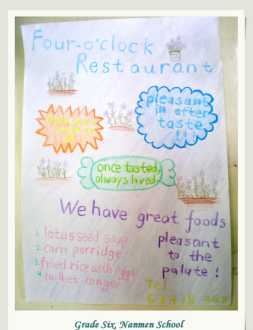 Four-o'clock
Restaurant
pleasant
in after
taste!!!
once tasted,
always loved.
We have great foods
1. lotus seed soup
2. corn porridge
3. fried rice with egg
pleasant
to the
palate!
Tel
Grade Six, Nanmen School